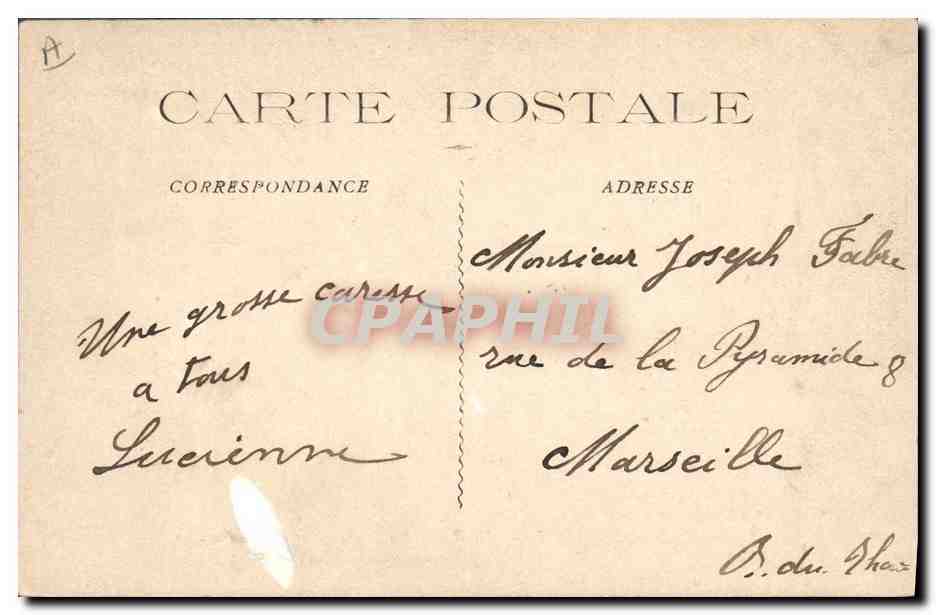 A
CARTE POSTALE
CORRESPONDANCE
Une grosse caresse
a tous
Lucienne
ADRESSE
Monsieur Joseph Fabre
rue de la Pyramide 8
Marseille
B. du Rhone
CPAPHIL